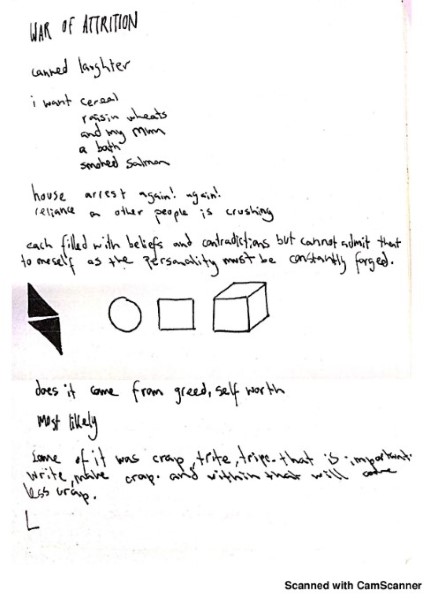 WAR OF ATTRITION
canned laughter
i want cereal
raisin wheats
and my mum
a bath
smoked salmon
house arrest again! again!
reliance on other people is crushing
each filled with beliefs and contradictions but cannot admit that
to meself as the personality must be constantly forged.
does it come from greed, self worth
most likely
Some of it was crap, trite, tripe. that is important.
write, make crap. and within that will come
less crap.
L
Scanned with CamScanner